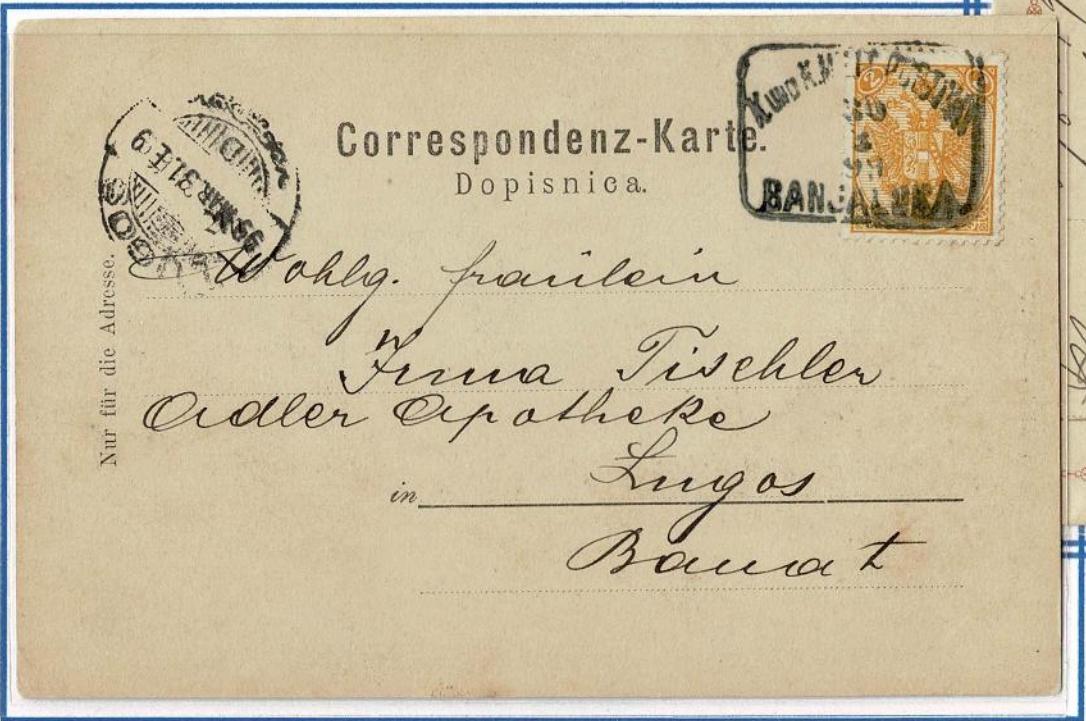 Correspondenz-Karte.
Dopisnica.
BANJALUKA
2
99 MAR. 31
LUGOS
Nur für die Adresse.
Wohlg. fräulein
Irma Tischler
Adler Apotheke
in Lugos
Banat